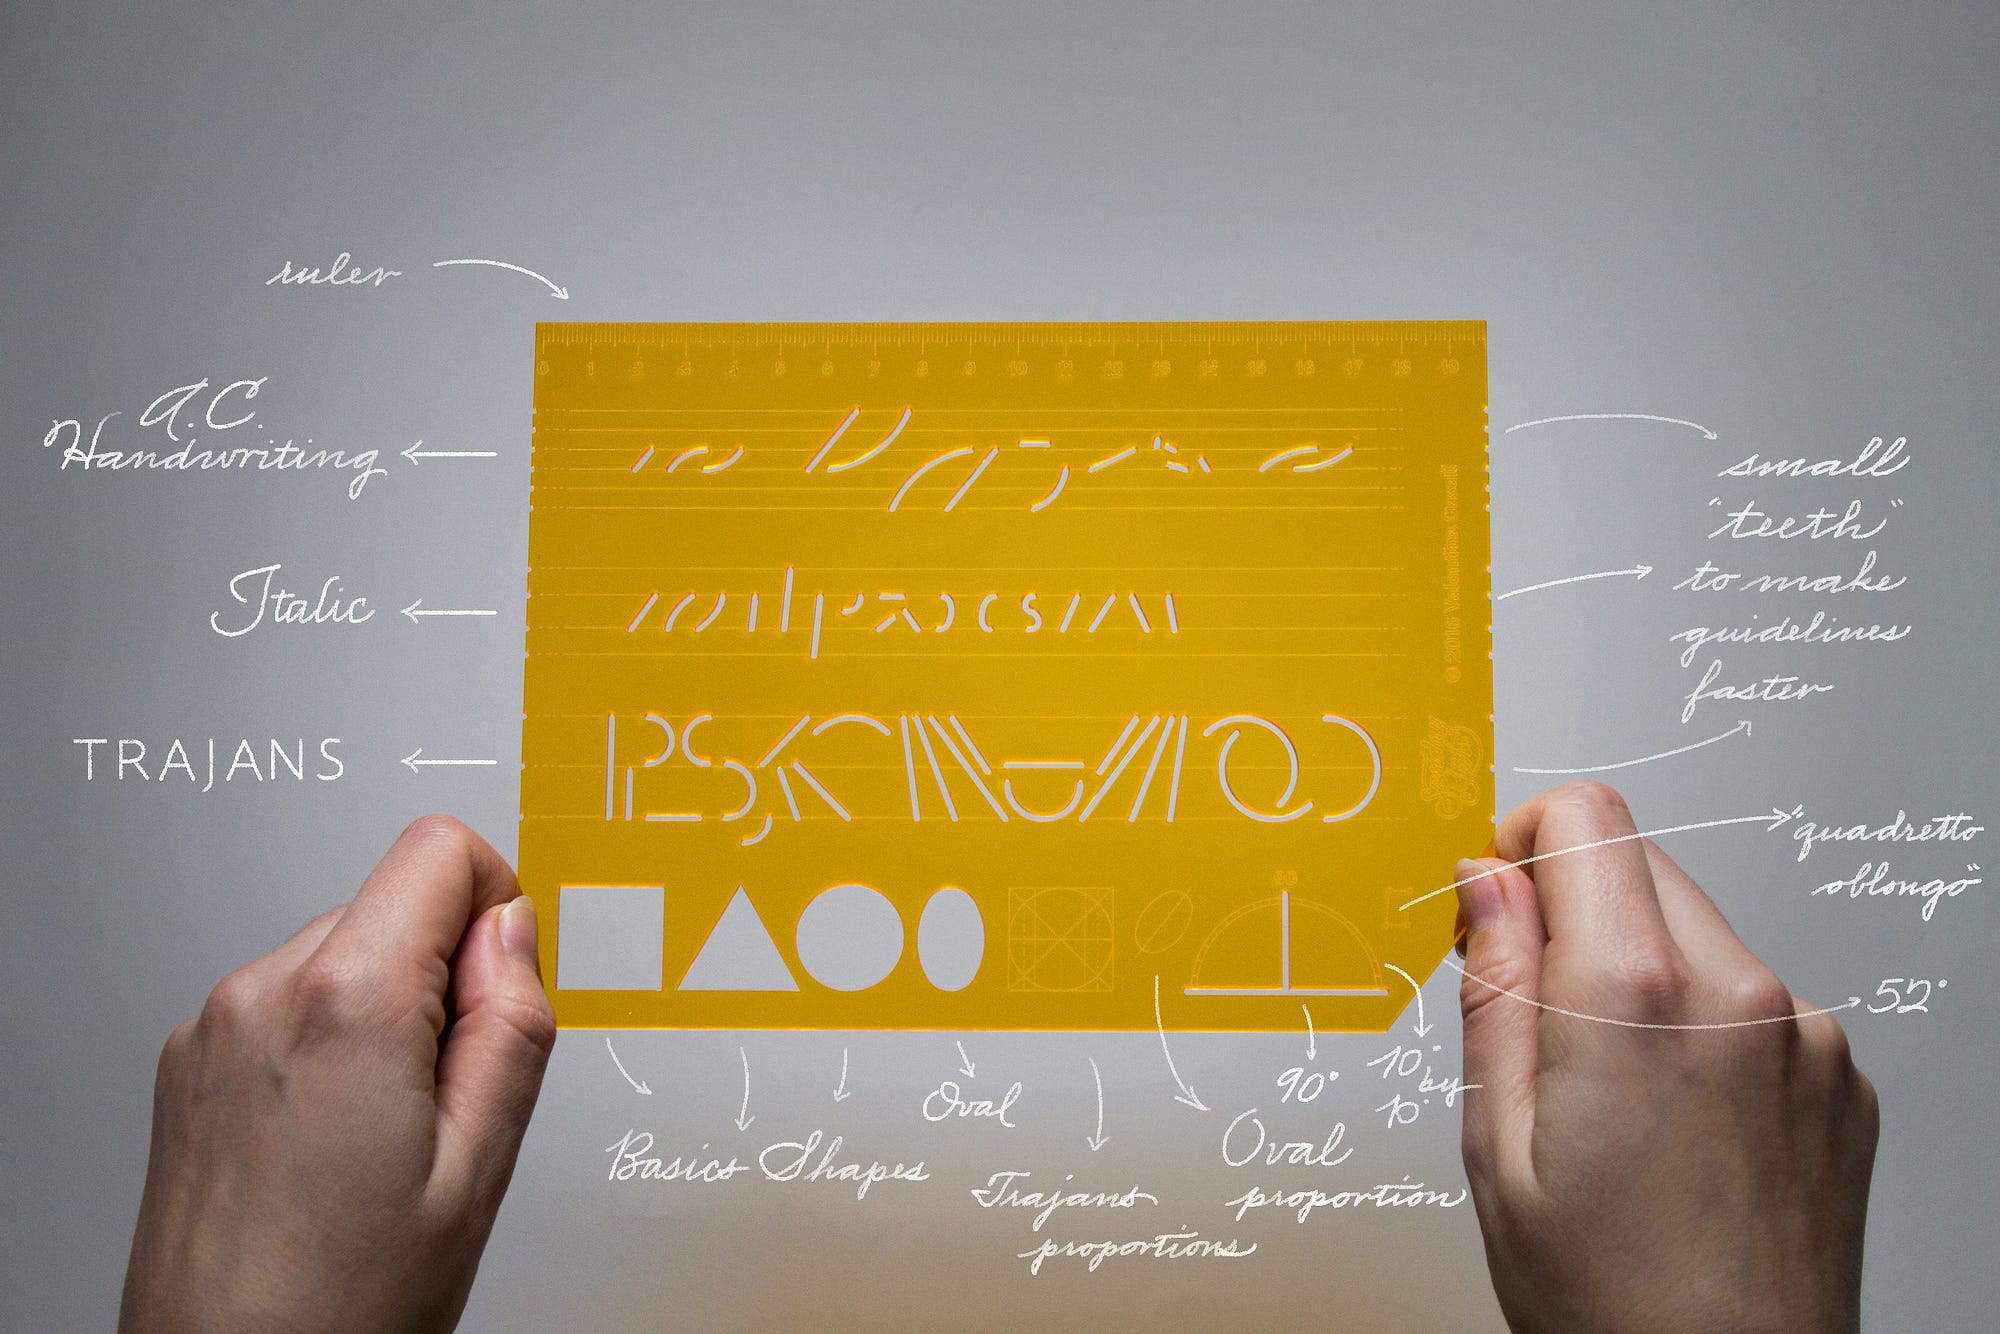 ruler
0 1 2 3 4 5 6 7 8 9 10 11 12 13 14 15 16 17 18 19
A.C.
Handwriting
Italic
TRAJANS
small
"teeth"
to make
guidelines
faster
"quadretto
oblongo"
52°
© 2016
90
90°
10°
by
10°
Oval
Basics Shapes
Trajans
proportions
Oval
proportion